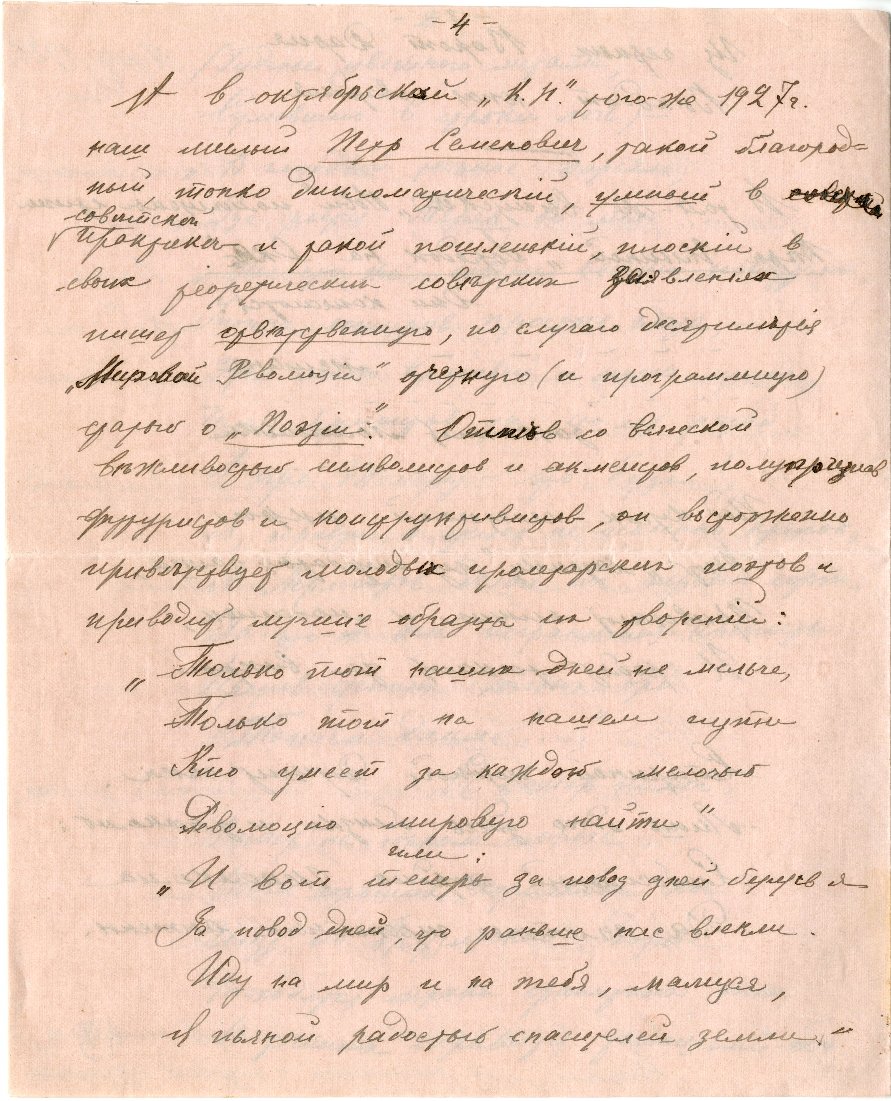 - 4 -
А в октябрьской "К.Н." того-же 1927 г.
наш милый Петр Семенович, такой благород=
ный, тонко дипломатический, умный в
советской
практике и такой пошленький, плоский в
своих теоретических советских заявлениях
пишет ответственную, по случаю десятилетия
"Мировой Революции" отчетную (и программную)
статью о "Поэзии". Отпев со всяческой
вежливостью символистов и акмеистов, полупризнав
футуристов и конструктивистов, он восторженно
приветствует молодых пролетарских поэтов и
приводит лучшие образцы их творений:
"Только тот наших дней не мельче,
Только тот на нашем пути
Кто умеет за каждой мелочью
Революцию мировую найти"
или:
"И вот теперь за повод дней берусь я
За повод дней, что раньше нас влекли.
Иду на мир и на тебя, мамуся,
С пьяной радостью спасителей земли."